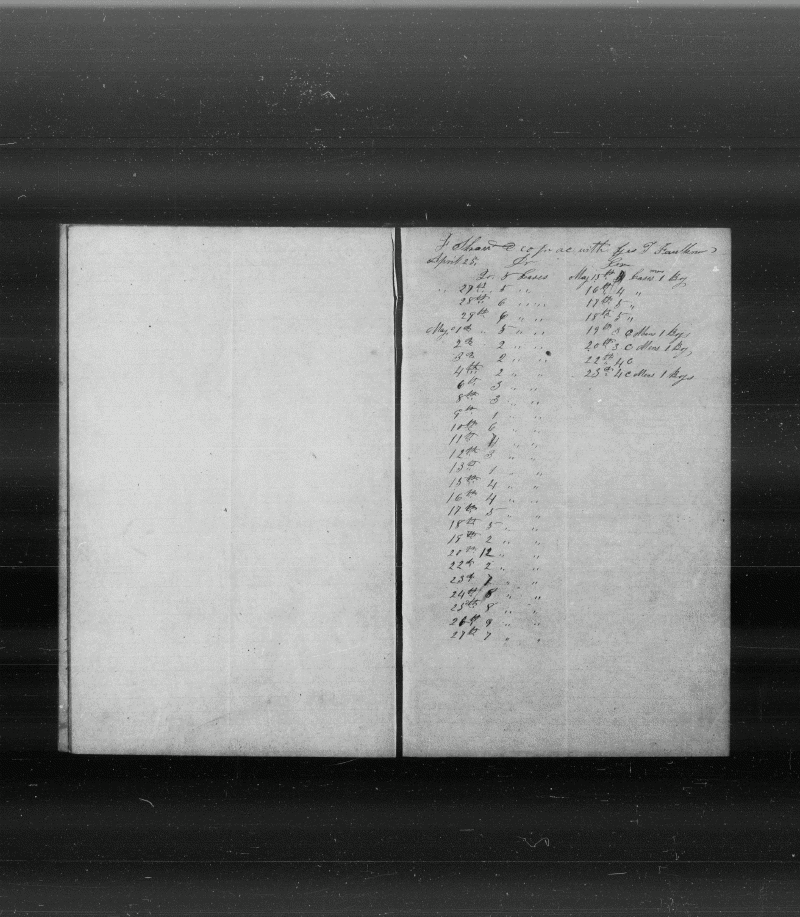 F Shaw & co in ac with Geo T Faulkner
April 25. Dr
Dr. 8 Cases
" 27th. 5 " "
28th. 6 " "
29th 6 " "
May 1st " 5 " "
2d 2 " "
3d 2 " "
4th 2 " "
6th 3 " "
8th 3 " "
9th 1 " "
10th 6 " "
11th 4 " "
12th 3 " "
13th 1 " "
15th 4 " "
16th 4 " "
17th 5 " "
18th 5 " "
19th 2 " "
20th 12 " "
22d 2 " "
23d 7 " "
24th 8 " "
25th 8 " "
26th 9 " "
27th 7 " "
May 15th Cases 1 Boy
16th 4 "
17th 5 "
18th 5 "
19th 3 C Mens 1 Boy
20th 3 C Mens 1 Boy
22th 4 C
23d 4 C Mens 1 Boys